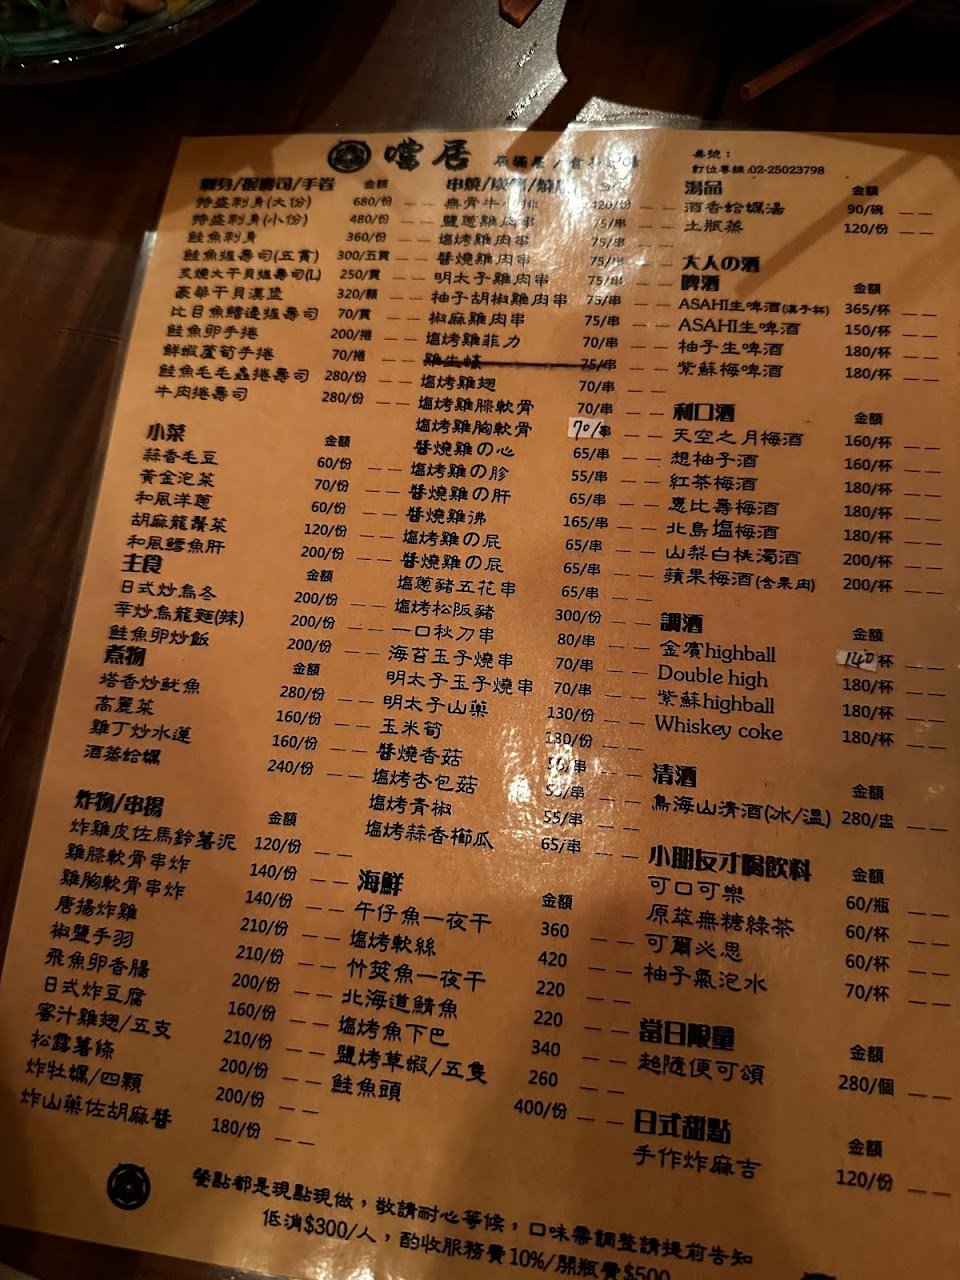 嚐居
桌號：
訂位專線:02-25023798
刺身/握壽司/手卷 金額
特盛刺身(大份) 680/份
特盛刺身(小份) 480/份
鮭魚刺身 360/份
鮭魚握壽司(五貫) 300/五貫
炙燒大干貝握壽司(L) 250/貫
豪華干貝漢堡 320/顆
比目魚鰭邊握壽司 70/貫
鮭魚卵手捲 200/捲
鮮蝦蘆筍手捲 70/捲
鮭魚毛毛蟲捲壽司 280/份
牛肉捲壽司 280/份
小菜 金額
蒜香毛豆 60/份
黃金泡菜 70/份
和風洋蔥 60/份
胡麻龍鬚菜 120/份
和風鱈魚肝 200/份
主食 金額
日式炒烏冬 200/份
辛炒烏龍麵(辣) 200/份
鮭魚卵炒飯 200/份
煮物 金額
塔香炒魷魚 280/份
高麗菜 160/份
雞丁炒水蓮 160/份
酒蒸蛤蠣 240/份
炸物/串揚 金額
炸雞皮佐馬鈴薯泥 120/份
雞膝軟骨串炸 140/份
雞胸軟骨串炸 140/份
唐揚炸雞 210/份
椒鹽手羽 210/份
飛魚卵香腸 200/份
日式炸豆腐 160/份
蜜汁雞翅/五支 210/份
松露薯條 200/份
炸牡蠣/四顆 200/份
炸山藥佐胡麻醬 180/份
串燒/炭烤/燒
無骨牛小排 420/份
鹽蔥雞肉串 75/串
塩烤雞肉串 75/串
醬燒雞肉串 75/串
明太子雞肉串 75/串
柚子胡椒雞肉串 75/串
椒麻雞肉串 75/串
塩烤雞菲力 70/串
雞生蠔 75/串
塩烤雞翅 70/串
塩烤雞膝軟骨 70/串
塩烤雞胸軟骨 70/串
醬燒雞の心 65/串
塩烤雞の胗 55/串
醬燒雞の肝 65/串
醬燒雞沸 165/串
塩烤雞の屁 65/串
醬燒雞の屁 65/串
塩蔥豬五花串 65/串
塩烤松阪豬 300/份
一口秋刀串 80/串
海苔玉子燒串 70/串
明太子玉子燒串 70/串
明太子山藥 130/份
玉米筍 130/份
醬燒香菇 55/串
塩烤杏包菇 55/串
塩烤青椒 55/串
塩烤蒜香櫛瓜 65/串
海鮮 金額
午仔魚一夜干 360
塩烤軟絲 420
竹筴魚一夜干 220
北海道鯖魚 220
塩烤魚下巴 340
鹽烤草蝦/五隻 260
鮭魚頭 400/份
湯品 金額
酒香蛤蠣湯 90/碗
土瓶蒸 120/份
大人の酒
啤酒 金額
ASAHI生啤酒(漢子杯) 365/杯
ASAHI生啤酒 150/杯
柚子生啤酒 180/杯
紫蘇梅啤酒 180/杯
利口酒 金額
天空之月梅酒 160/杯
想柚子酒 160/杯
紅茶梅酒 180/杯
惠比壽梅酒 180/杯
北島塩梅酒 180/杯
山梨白桃濁酒 200/杯
蘋果梅酒(含果肉) 200/杯
調酒 金額
金賓highball 140杯
Double high 180/杯
紫蘇highball 180/杯
Whiskey coke 180/杯
清酒 金額
鳥海山清酒(冰/溫) 280/盅
小朋友才喝飲料 金額
可口可樂 60/瓶
原萃無糖綠茶 60/杯
可爾必思 60/杯
柚子氣泡水 70/杯
當日限量 金額
超隨便可頌 280/個
日式甜點 金額
手作炸麻吉 120/份
餐點都是現點現做，敬請耐心等候，口味需調整請提前告知
低消$300/人，酌收服務費10%/開瓶費$500